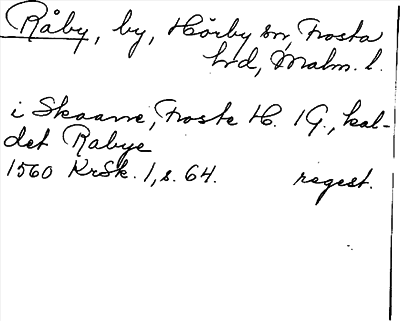 Råby, by, Hörby sn, Frosta
hrd, Malm. l.
i Skaane, Froste H. 1 G., kal-
det Rabye
1560 KrSk. 1, s. 64. regest.